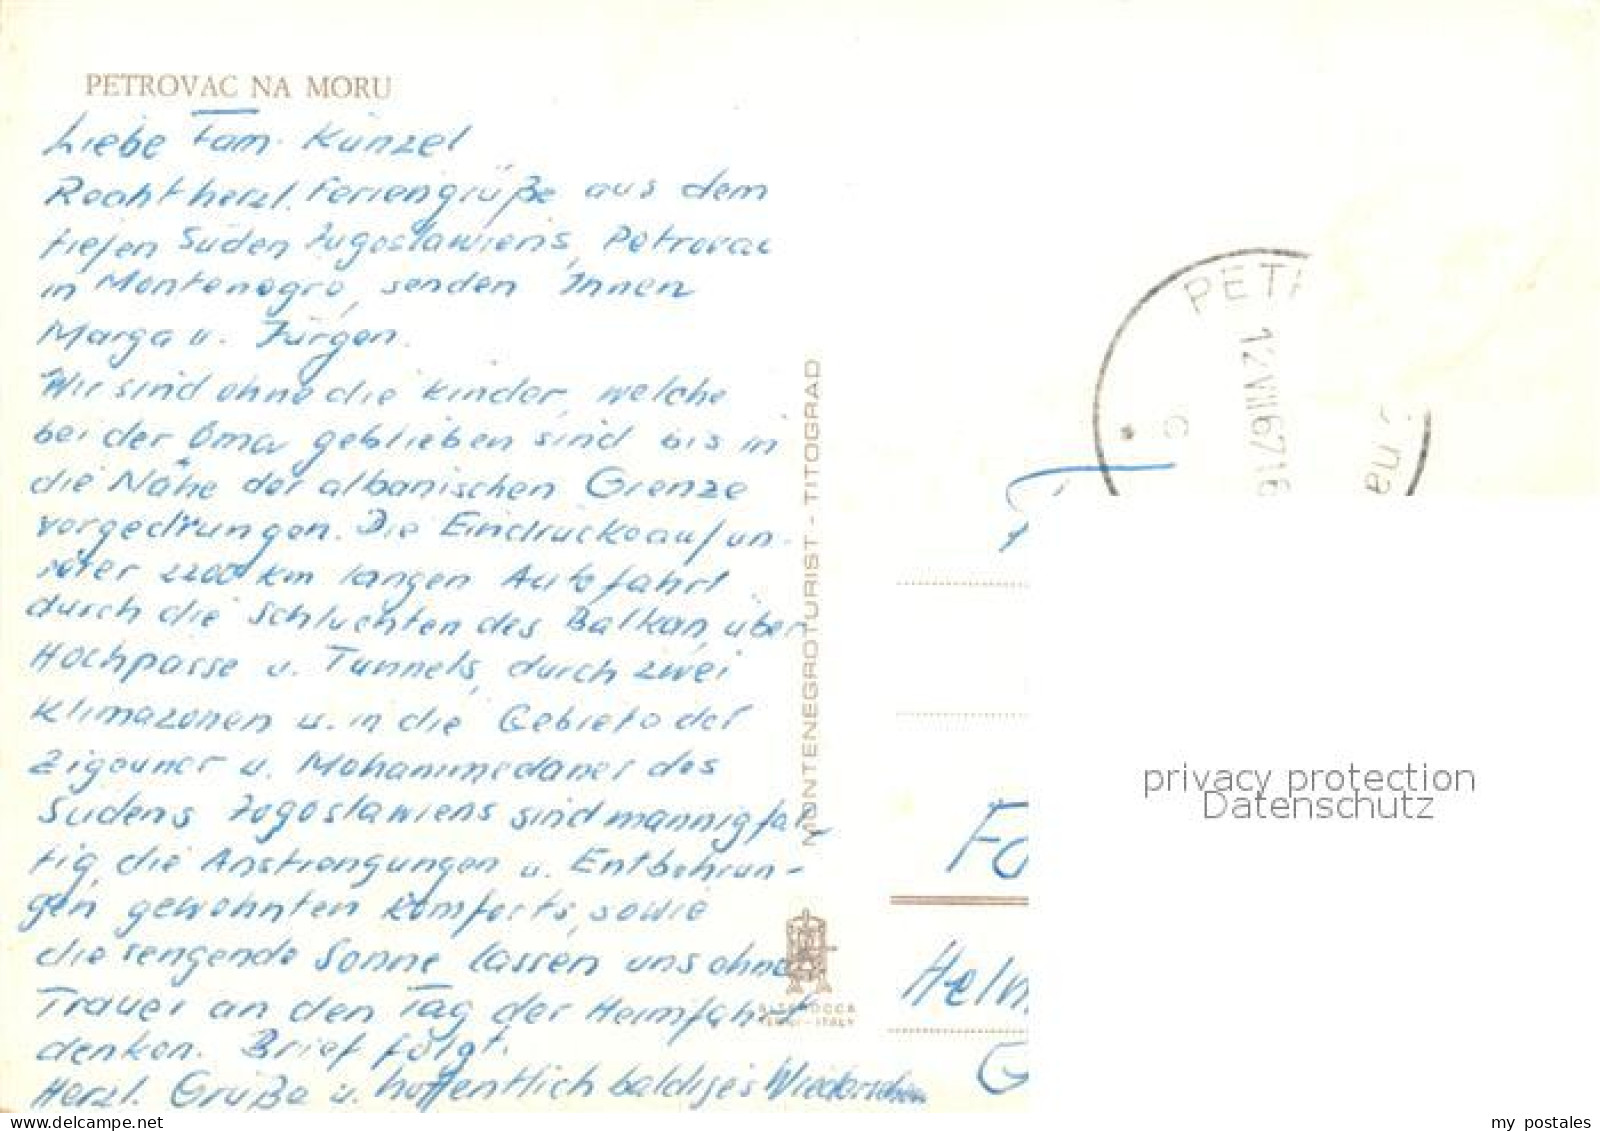 PETROVAC NA MORU
Liebe Fam. Künzel
Recht herzl. Feriengrüße aus dem
tiefen Süden Jugoslawiens, Petrovac
in Montenegro, senden Ihnen
Marga u. Jürgen.
Wir sind ohne die Kinder, welche
bei der Oma geblieben sind bis in
die Nähe der albanischen Grenze
vorgedrungen. Die Eindrücke auf un-
serer 2200 km langen Autofahrt
durch die Schluchten des Balkan, über
Hochpässe u. Tunnels, durch zwei
Klimazonen u. in die Gebiete der
Zigeuner u. Mohammedaner des
Südens Jugoslawiens sind mannigfal-
tig, die Anstrengungen u. Entbehrun-
gen gewohnten Komforts, sowie
die sengende Sonne lassen uns ohne
Trauer an den Tag der Heimfahrt
denken. Brief folgt.
Herzl. Grüße u. hoffentlich baldiges Wiedersehen
MONTENEGROTURIST - TITOGRAD
TERNI - ITALY
PETR
12 VIII 67 16
na
Fa
Helm
G
privacy protection
Datenschutz
my postales